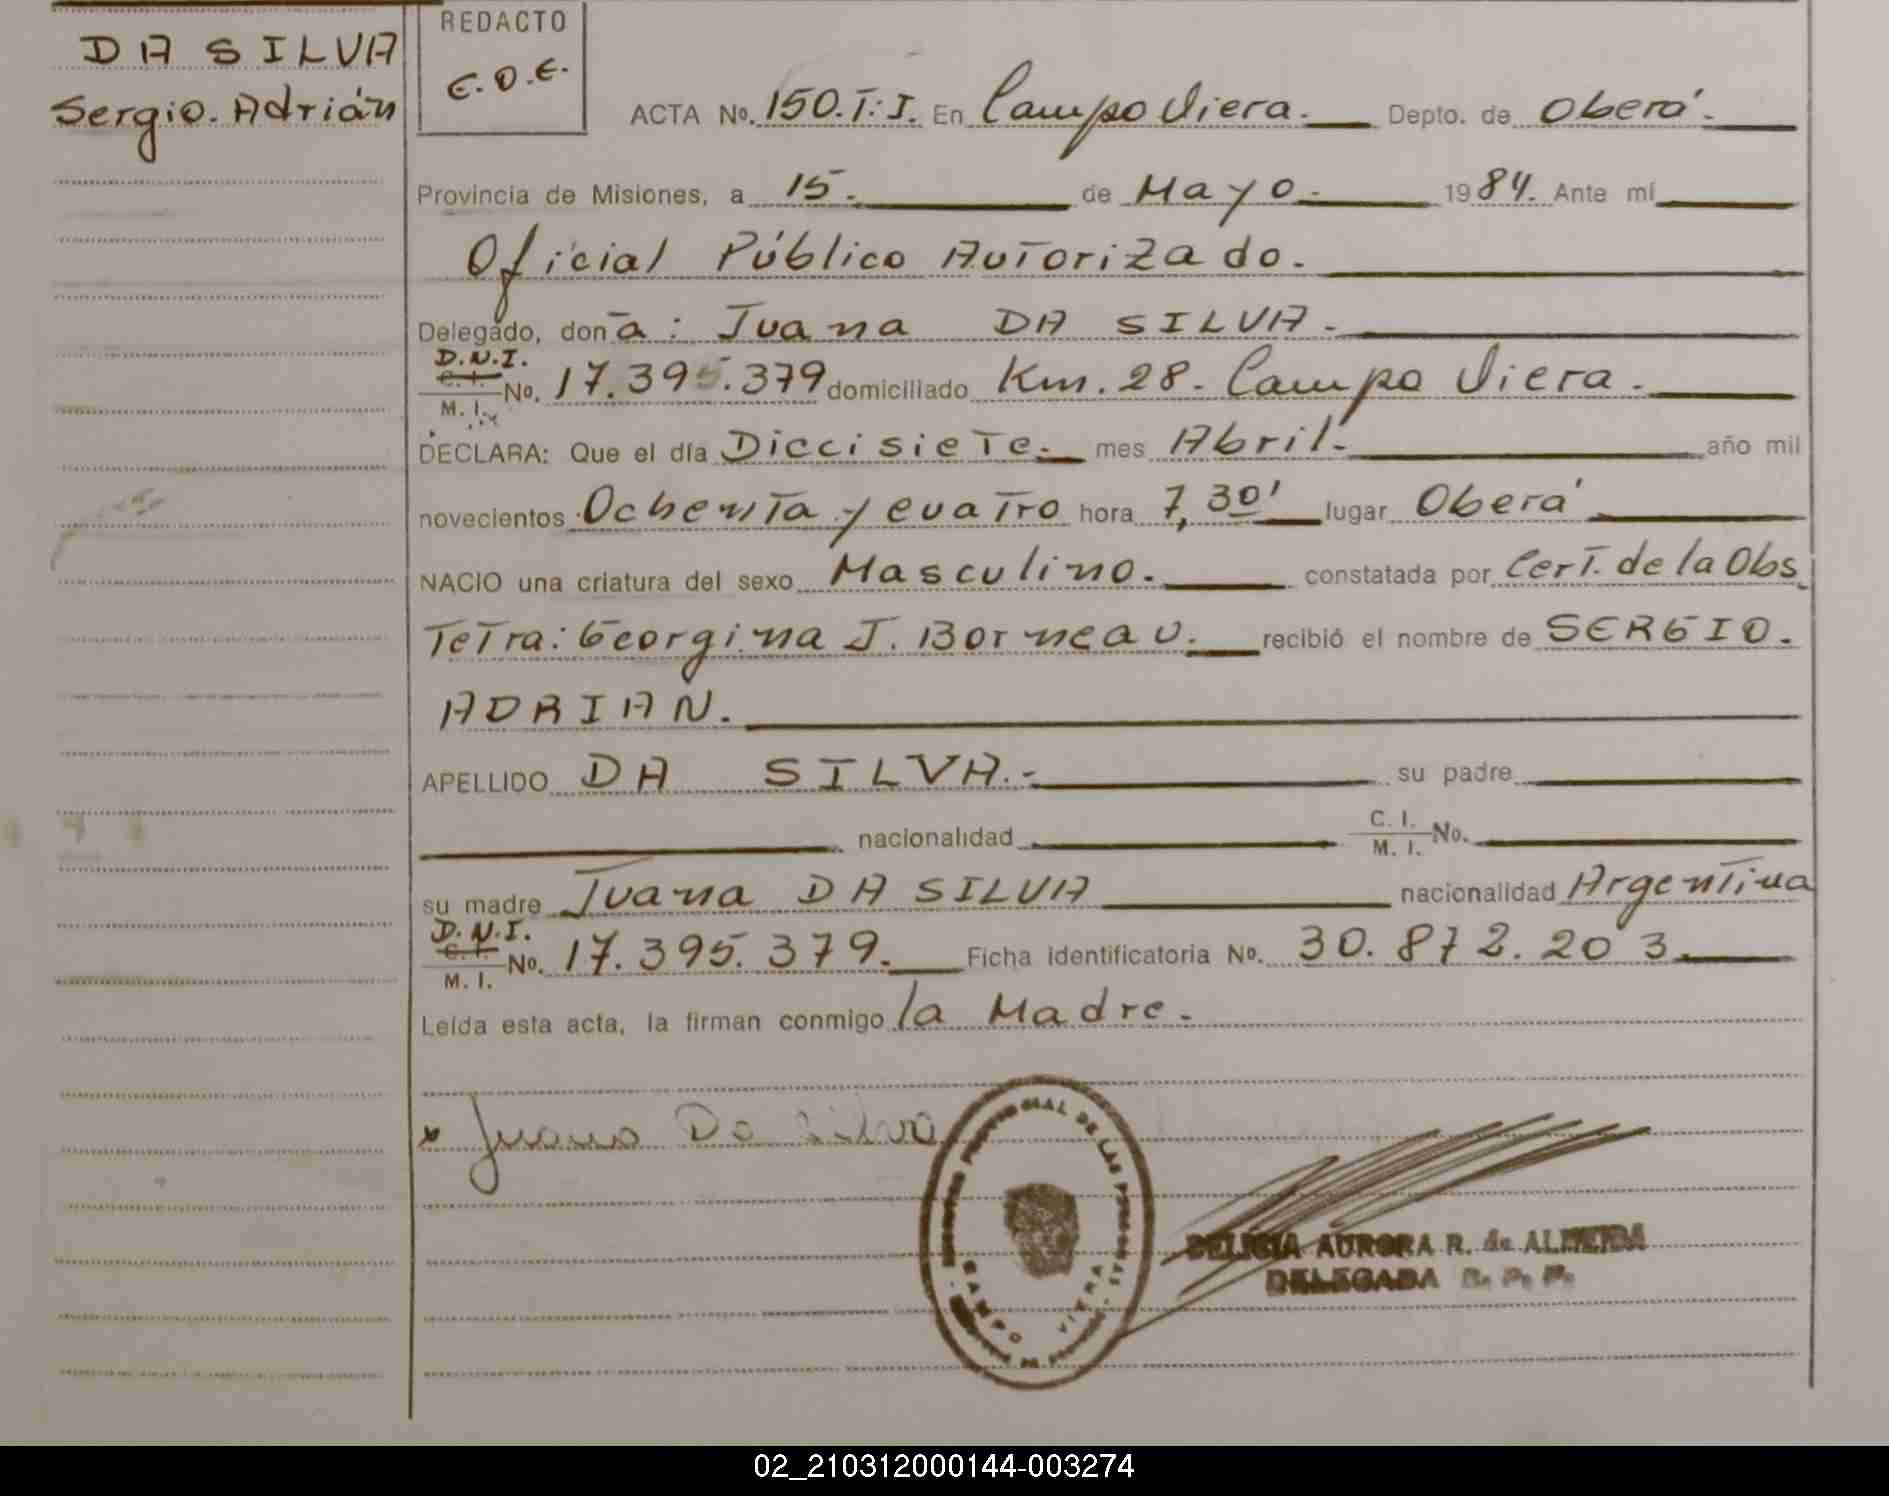 DA SILVA
Sergio. Adrián
REDACTO
E.D.E.
ACTA No. 150.T:I. En Campo Viera. Depto. de Oberá.
Provincia de Misiones, a 15. de Mayo. 1984. Ante mí
Oficial Público Autorizado.
Delegado, don a: Juana DA SILVA.
D.N.I. C. I. M. I. No. 17.395.379 domiciliado Km. 28. Campo Viera.
DECLARA: Que el día Diecisiete. mes Abril. año mil
novecientos Ochenta y cuatro hora 7,30' lugar Oberá
NACIO una criatura del sexo Masculino. constatada por Cert. de la Obs
Tetra: Georgina J. Bormeau. recibió el nombre de SERGIO.
ADRIAN.
APELLIDO DA SILVA. su padre
nacionalidad C. I. M. I. No.
su madre Juana DA SILVA nacionalidad Argentina
D.N.I. C. I. M. I. No. 17.395.379. Ficha identificatoria No. 30.872.203
Leída esta acta, la firman conmigo la Madre.
x Juana Da Silva
PROVINCIAL DE LAS
CAMPO VIERA
DELICIA AURORA R. de ALMEIDA
DELEGADA R. P. P.
02_210312000144-003274